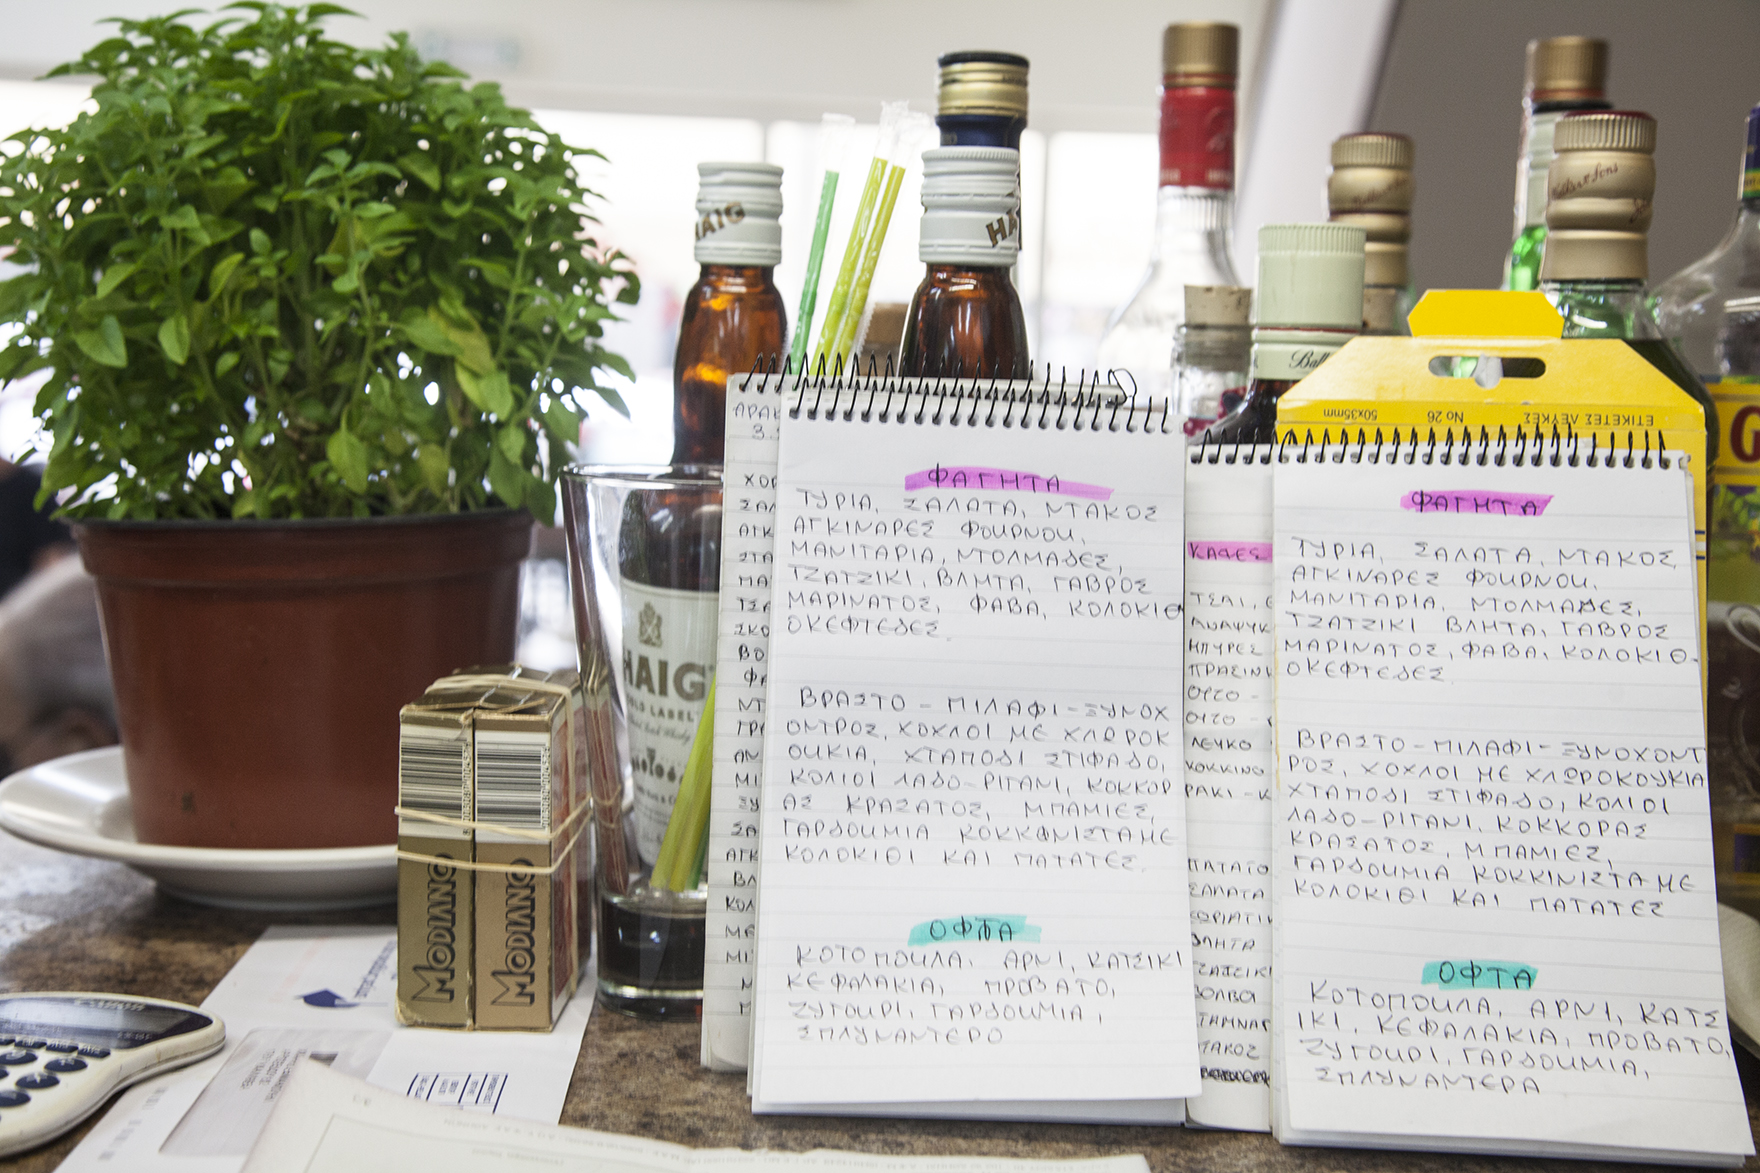 HAIG
HAIG
ΕΤΙΚΕΤΕΣ ΛΕΥΚΕΣ
No 26
50x35mm
ΦΑΓΗΤΑ
ΤΥΡΙΑ, ΣΑΛΑΤΑ, ΝΤΑΚΟΣ
ΑΓΚΙΝΑΡΕΣ ΦΟΥΡΝΟΥ,
ΜΑΝΙΤΑΡΙΑ, ΝΤΟΛΜΑΔΕΣ,
ΤΖΑΤΖΙΚΙ, ΒΛΗΤΑ, ΓΑΒΡΟΣ
ΜΑΡΙΝΑΤΟΣ, ΦΑΒΑ, ΚΟΛΟΚΙΘ
ΟΚΕΦΤΕΔΕΣ.
ΒΡΑΣΤΟ - ΠΙΛΑΦΙ - ΞΥΝΟΧ
ΟΝΤΡΟΣ, ΧΟΧΛΟΙ ΜΕ ΧΛΩΡΟΚ
ΟΥΚΙΑ, ΧΤΑΠΟΔΙ ΣΤΙΦΑΔΟ,
ΚΟΛΙΟΙ ΛΑΔΟ-ΡΙΓΑΝΙ, ΚΟΚΚΟΡ
ΑΣ ΚΡΑΣΑΤΟΣ, ΜΠΑΜΙΕΣ,
ΓΑΡΔΟΥΜΙΑ ΚΟΚΚΙΝΙΣΤΑ ΜΕ
ΚΟΛΟΚΙΘΙ ΚΑΙ ΠΑΤΑΤΕΣ.
ΟΦΤΑ
ΚΟΤΟΠΟΥΛΑ, ΑΡΝΙ, ΚΑΤΣΙΚΙ
ΚΕΦΑΛΑΚΙΑ, ΠΡΟΒΑΤΟ,
ΖΥΓΟΥΡΙ, ΓΑΡΔΟΥΜΙΑ,
ΣΠΛΥΝΑΝΤΕΡΟ
ΚΑΦΕΣ
ΤΣΑΙ,
ΑΝΑΨΥΚ
ΜΠΥΡΕΣ
ΠΡΑΣΙΝ
ΟΥΖΟ -
ΟΥΖΟ -
ΛΕΥΚΟ
ΚΟΚΚΙΝΟ
ΡΑΚΙ - Κ
ΠΑΤΑΤΟ
ΣΑΛΑΤΑ
ΧΩΡΙΑΤΙΚ
ΒΛΗΤΑ
ΤΖΑΤΖΙΚΙ
ΒΟΛΒΟΙ
ΝΤΑΚΟΣ
ΦΑΓΗΤΑ
ΤΥΡΙΑ, ΣΑΛΑΤΑ, ΝΤΑΚΟΣ,
ΑΓΚΙΝΑΡΕΣ ΦΟΥΡΝΟΥ,
ΜΑΝΙΤΑΡΙΑ, ΝΤΟΛΜΑΔΕΣ,
ΤΖΑΤΖΙΚΙ ΒΛΗΤΑ, ΓΑΒΡΟΣ
ΜΑΡΙΝΑΤΟΣ, ΦΑΒΑ, ΚΟΛΟΚΙΘ-
ΟΚΕΦΤΕΔΕΣ.
ΒΡΑΣΤΟ - ΠΙΛΑΦΙ - ΞΥΝΟΧΟΝΤ
ΡΟΣ, ΧΟΧΛΟΙ ΜΕ ΧΛΩΡΟΚΟΥΚΙΑ
ΧΤΑΠΟΔΙ ΣΤΙΦΑΔΟ, ΚΟΛΙΟΙ
ΛΑΔΟ-ΡΙΓΑΝΙ, ΚΟΚΚΟΡΑΣ
ΚΡΑΣΑΤΟΣ, ΜΠΑΜΙΕΣ,
ΓΑΡΔΟΥΜΙΑ ΚΟΚΚΙΝΙΣΤΑ ΜΕ
ΚΟΛΟΚΙΘΙ ΚΑΙ ΠΑΤΑΤΕΣ
ΟΦΤΑ
ΚΟΤΟΠΟΥΛΑ, ΑΡΝΙ, ΚΑΤΣ
ΙΚΙ, ΚΕΦΑΛΑΚΙΑ, ΠΡΟΒΑΤΟ,
ΖΥΓΟΥΡΙ, ΓΑΡΔΟΥΜΙΑ,
ΣΠΛΥΝΑΝΤΕΡΑ
HAIG
GOLD LABEL
MODIANO
MODIANO